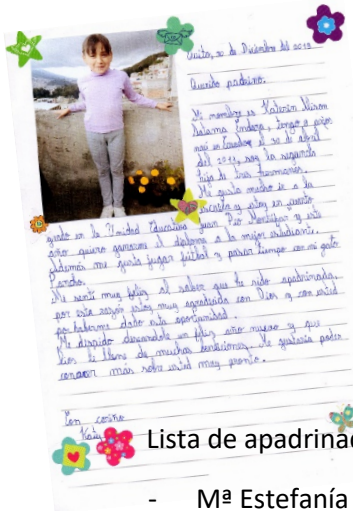 Quito, 20 de Diciembre del 2019
Querido padrino.
Mi nombre es Katerin
tengo 8 años
nací en Ecuador el 30 de abril
del 2011, soy la segunda
hija de tres hermanos.
Me gusta mucho ir a la
escuela y estoy en cuarto
grado en la Unidad Educativa Juan Pío Montúfar y este
año quiero ganarme el diploma a la mejor estudiante.
Además me gusta jugar fútbol y pasar tiempo con mi gato
Pancho.
Me sentí muy feliz al saber que he sido apadrinada,
por esta razón estoy muy agradecida con Dios y con usted
por haberme dado esta oportunidad.
Me despido deseandole un feliz año nuevo y que
Dios le llene de muchas bendiciones. Me gustaría poder
conocer más sobre usted muy pronto.
Con cariño
Katy
Lista de apadrinad
- Mª Estefanía